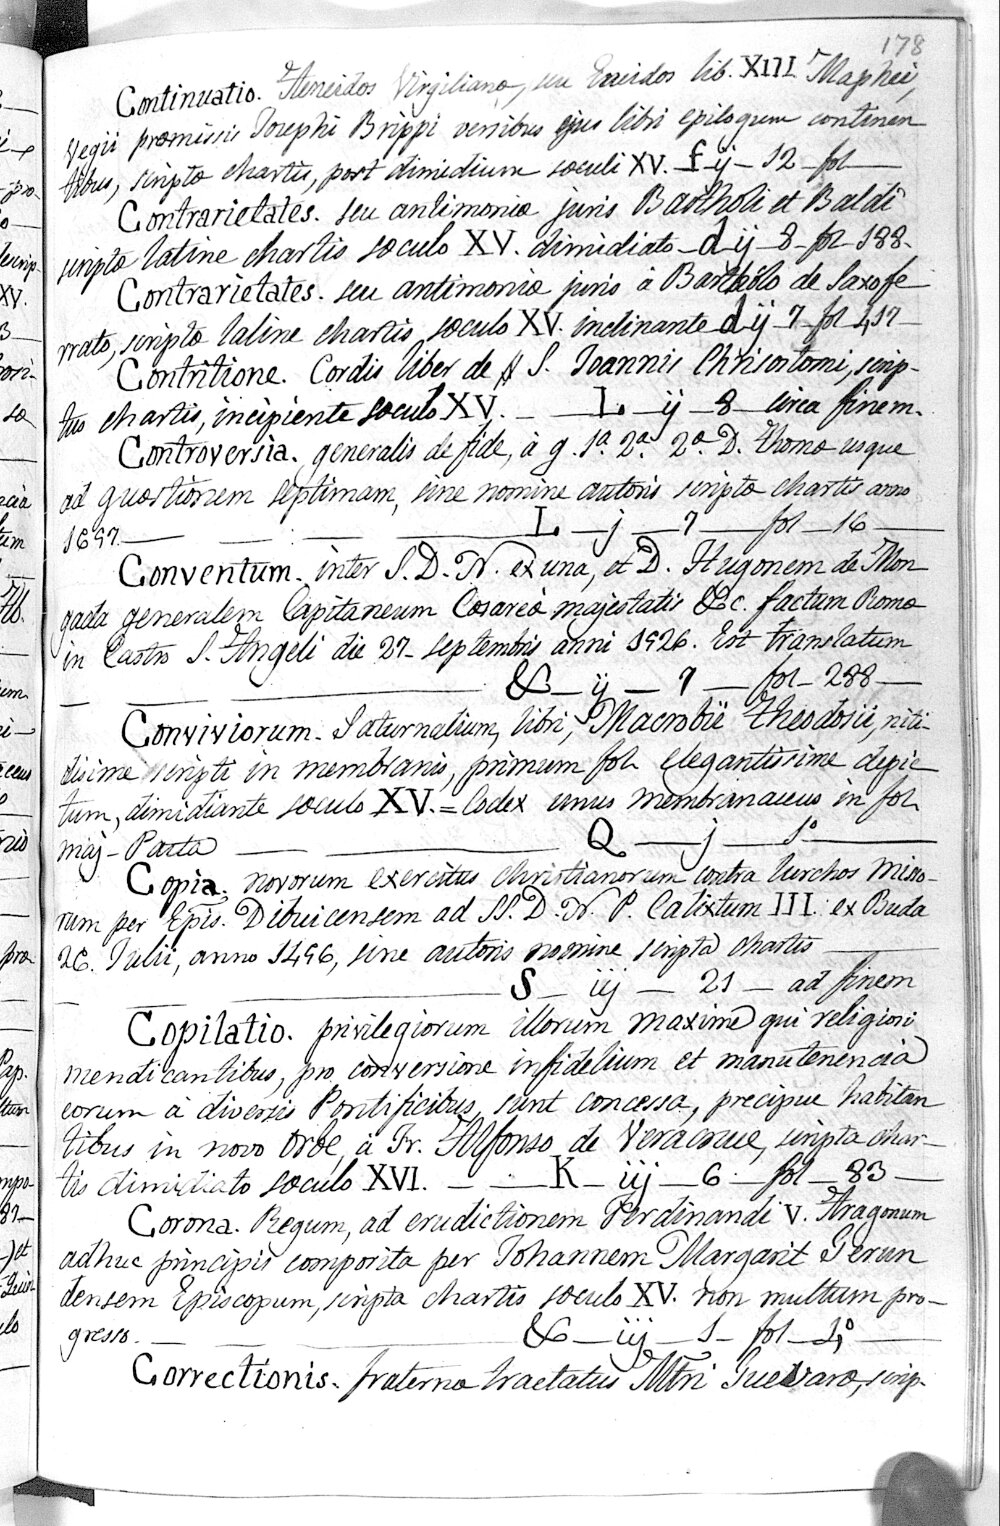 178
Continuatio. Aeneidos Virgilianæ, seu Eneidos lib. XIII Maphei,
Vegii præmissis Josephi Brippi versibus ejus libri epilogum continen
tibus, scripta chartis, post dimidium sæculi XV. f ij – 12 fol —
Contrarietates. seu antimoniæ juris Bartholi et Baldi
scriptæ latine chartis sæculo XV. dimidiato – d ij – 8 – fol 188.
Contrarietates. seu antimoniæ juris à Bartholo de Saxofe
rrato, scriptæ latine chartis sæculo XV. inclinante d ij – 7 – fol 417 —
Contritione. Cordis liber de S. Joannis Chrisostomi, scrip-
tus chartis, incipiente sæculo XV. — L — ij — 8 — circa finem.
Controversia. generalis de fide, à q. 1ª 2ª 2ª D. Thomæ usque
ad quæstionem septimam, sine nomine autoris scripta chartis anno
1597. — L — j — 7 — fol — 16 —
Conventum. inter S. D. N. ex una, et D. Hugonem de Mon
gada generalem Capitaneum Cæsareæ majestatis &c. factum Romæ
in Castro S. Angeli die 27 – septembris anni 1526. Est translatum
— & — ij — 7 — fol – 288 —
Conviviorum. Saturnalium, libri, Macrobii Theodosii, niti-
disime scripti in membranis, primum fol. elegantissime depic
tum, dimidiante sæculo XV. = Codex unus membranaceus in fol.
maj – Pasta — Q — j — 1º —
Copia. novorum exercitus christianorum contra turchos misso-
rum per Epis. Dibuicensem ad SS. D. N. P. Calixtum III. ex Buda
26. Julii, anno 1456, sine autoris nomine scripta chartis —
— S — iij — 21 — ad finem
Copilatio. privilegiorum illorum maxime qui religiosi
mendicantibus, pro conversione infidelium et manutenencia
eorum à diversis Pontificibus, sunt concessa, precipue habitan
tibus in novo Orbe, à Fr. Alfonso de Veracruce, scripta char-
tis dimidiato sæculo XVI. — K – iij — 6 – fol – 83 —
Corona. Regum, ad erudictionem Ferdinandi V. Aragonum
adhuc principis composita per Johannem Margarit Gerun
densem Episcopum, scripta chartis sæculo XV. non multum pro-
gresso. — & — iij — 1 – fol – 1º —
Correctionis. fraternæ tractatus Mtri Guevaræ, scrip-